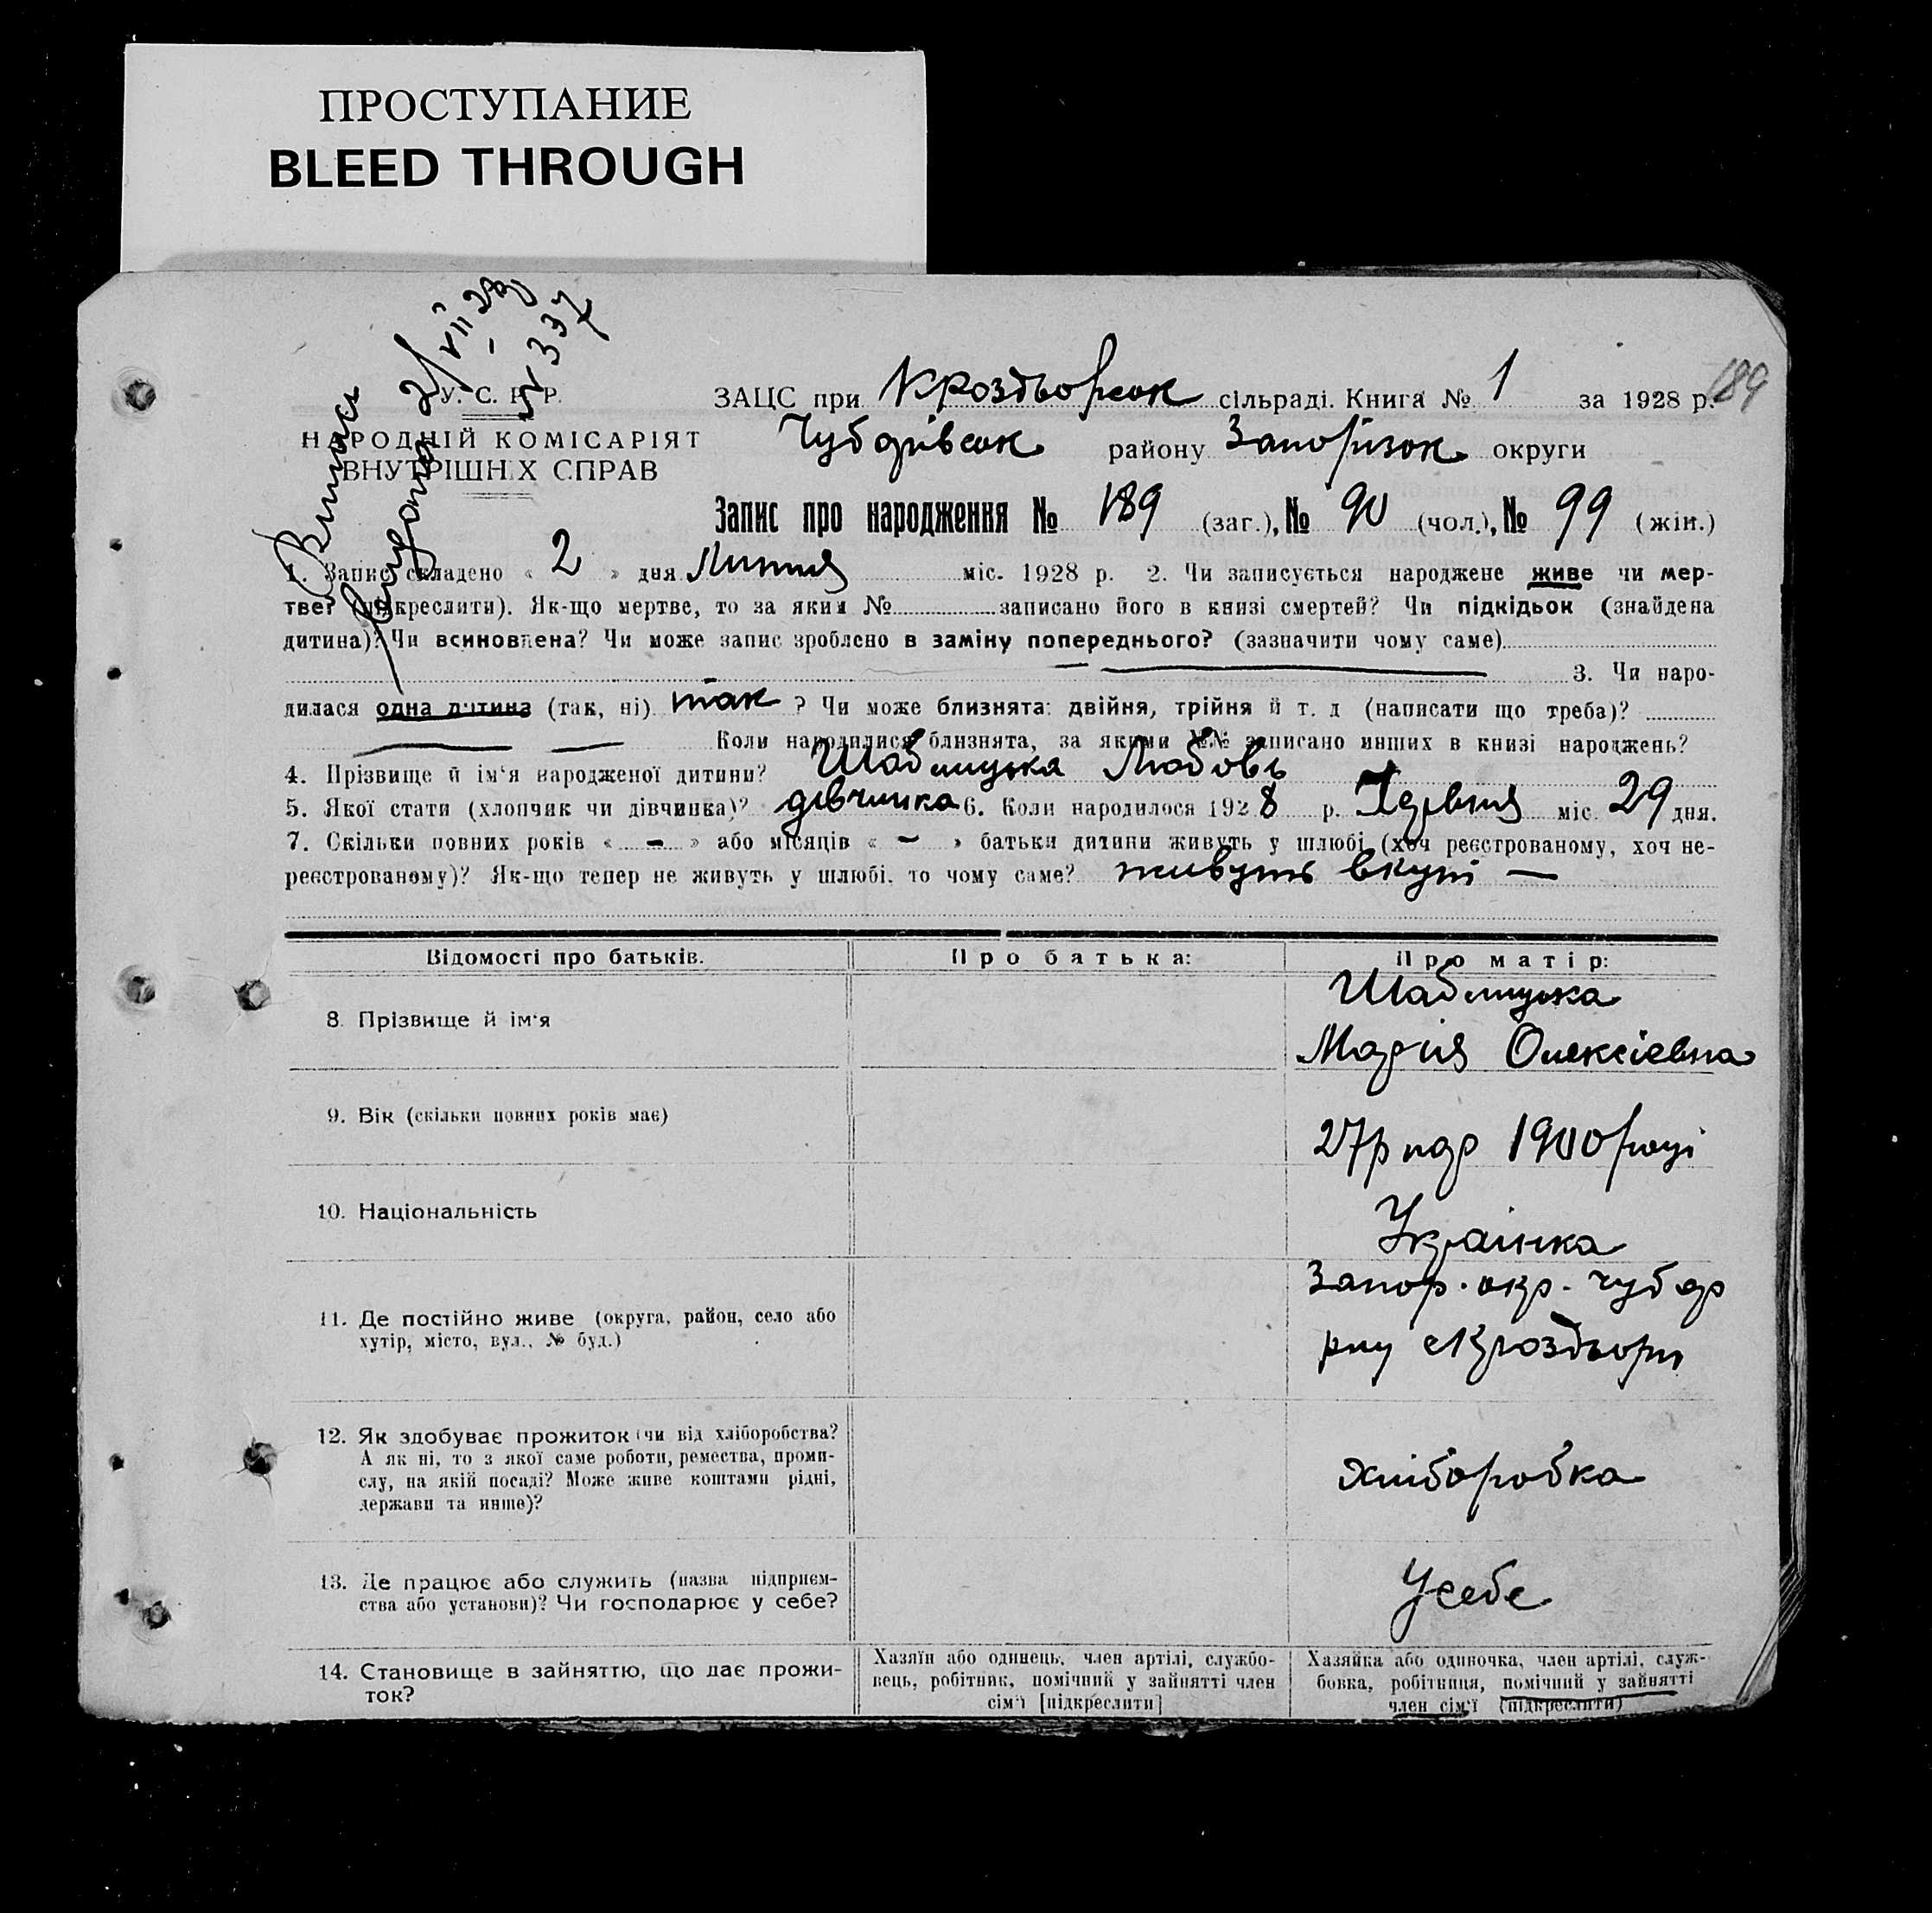 ПРОСТУПАНИЕ
BLEED THROUGH
189
Выпись
выдана 2/VII 28
№ 337
У. С. Р. Р.
НАРОДНІЙ КОМІСАРІЯТ
ВНУТРІШНІХ СПРАВ
ЗАЦС при Кроздворськ сільраді. Книга № 1 за 1928 р.
Чубарівськ району Запорізок округи
Запис про народження № 189 (заг.), № 90 (чол.), № 99 (жін.)
1. Запис складено « 2 » дня Липня міс. 1928 р. 2. Чи записується народжене живе чи мер-
тве? (підкреслити). Як-що мертве, то за яким № записано його в книзі смертей? Чи підкідьок (знайдена
дитина)? Чи всиновлена? Чи може запис зроблено в заміну попереднього? (зазначити чому саме)
3. Чи наро-
дилася одна дитина (так, ні) так ? Чи може близнята: двійня, трійня й т. д (написати що треба)?
Коли народилися близнята, за якими №№ записано инших в книзі народжень?
4. Прізвище й ім‘я народженої дитини? Шаблицька Любовь
5. Якої стати (хлопчик чи дівчинка)? дівчинка 6. Коли народилося 1928 р. Червня міс. 29 дня.
7. Скільки повних років « – » або місяців « – » батьки дитини живуть у шлюбі (хоч реєстрованому, хоч не-
реєстрованому)? Як-що тепер не живуть у шлюбі, то чому саме? живуть вкупі —
Відомості про батьків. Про батька: Про матір:
8. Прізвище й ім‘я Шаблицька
Марія Олексіевна
9. Вік (скільки повних років має) 27р нар 1900 році
10. Національність Українка
11. Де постійно живе (округа, район, село або
хутір, місто, вул., № буд.)
Запор. окр. Чубар
рну с Кроздвори
12. Як здобуває прожиток (чи від хліборобства?
А як ні, то з якої саме роботи, ремества, проми-
слу, на якій посаді? Може живе коштами рідні,
держави та инше)?
хліборобка
13. Де працює або служить (назва підприєм-
ства або установи)? Чи господарює у себе?
Усебе
14. Становище в зайняттю, що дає прожи-
ток?
Хазяїн або одинець, член артілі, службо-
вець, робітник, помічний у зайнятті член
сім‘ї [підкреслити]
Хазяйка або одиночка, член артілі, служ-
бовка, робітниця, помічний у зайнятті
член сім‘ї (підкреслити)